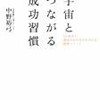 宇宙と
つながる
成功習慣
中野裕弓